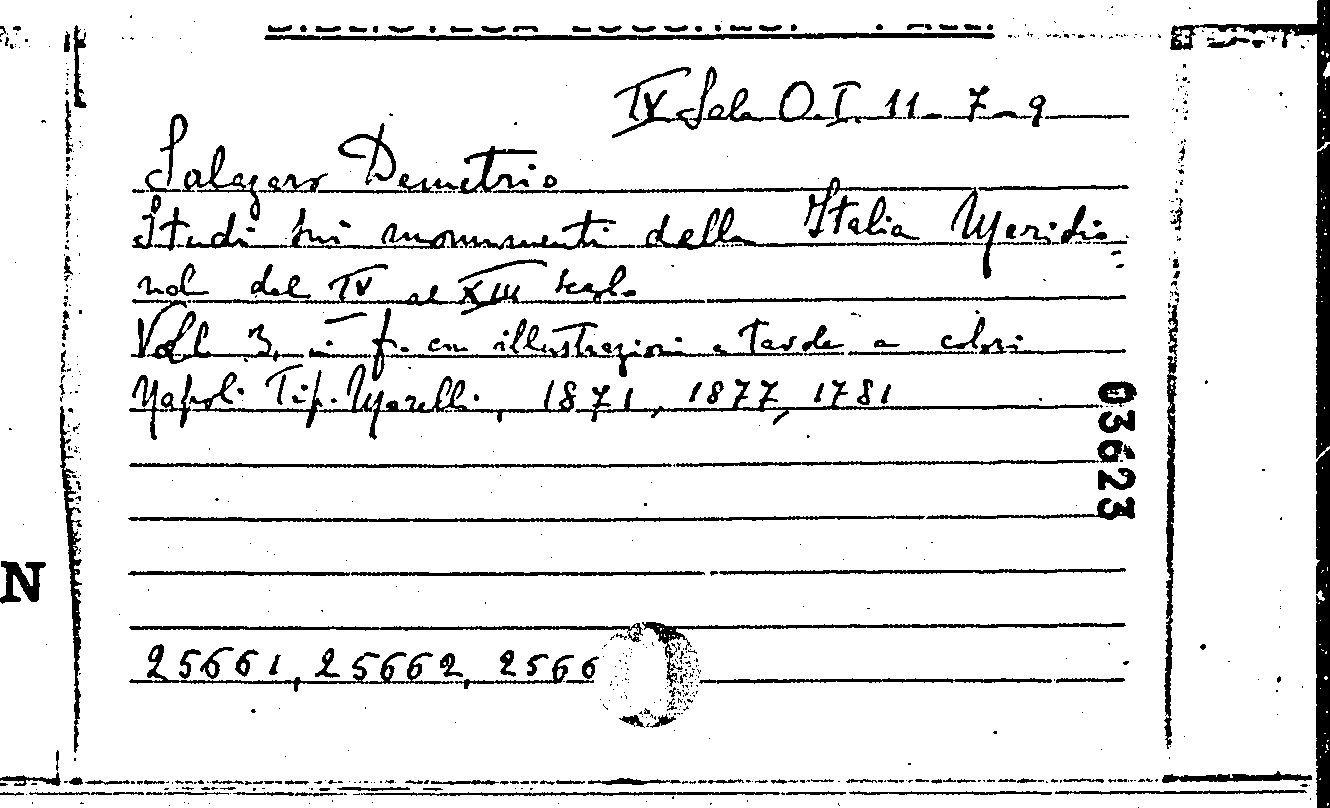 IV Sala O.I. 11-7-9
Salazaro Demetrio
Studi sui monumenti della Italia Meridio
nale dal IV al XIII secolo
Voll. 3, in f. con illustrazioni e tavole a colori
Napoli Tip. Morelli, 1871, 1877, 1781
03623
N
25661, 25662, 2566